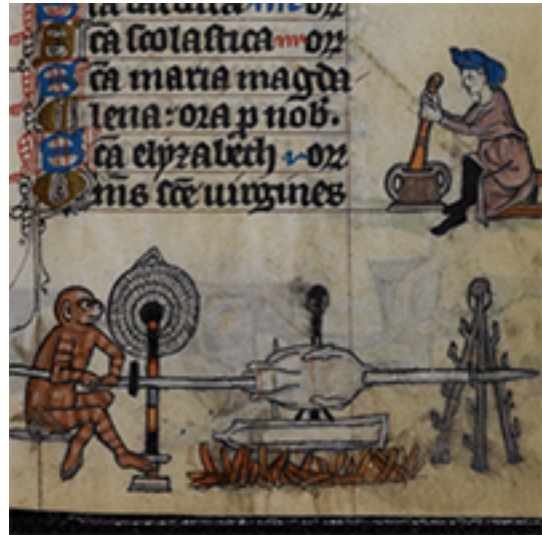 ca scolastica or
ca maria magda
lena: ora p nob.
ca elyzabeth or
ms sce uirgines